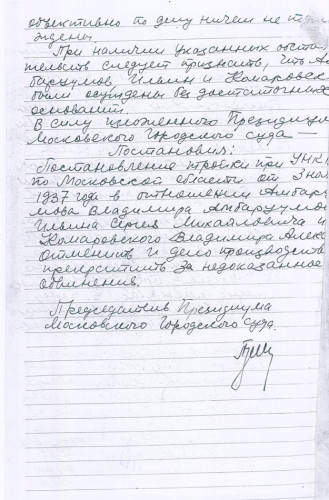 объективно по делу ничем не подтвер
ждены.
При наличии указанных обсто
тельств следует признать, что Ам
барцумов, Ильин и Комаровск
были осуждены без достаточных
оснований.
В силу изложенного Президиум
Московского Городского суда —
Постановил:
Постановление тройки при УНКВ
по Московской области от 3 ноя
1937 года в отношении Амбарц
мова Владимира Амбарцумов
Ильина Сергея Михайловича и
Комаровского Владимира Алекс
отменить и дело производств
прекратить за недоказанност
обвинения.
Председатель Президиума
Московского Городского суда.